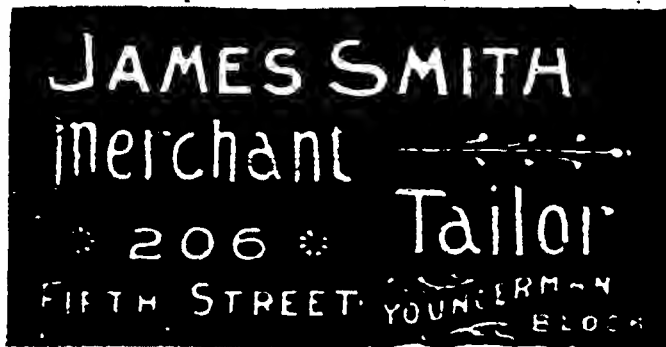 JAMES SMITH
Merchant
Tailor
206
FIFTH STREET.
YOUNGERMAN
BLOCK